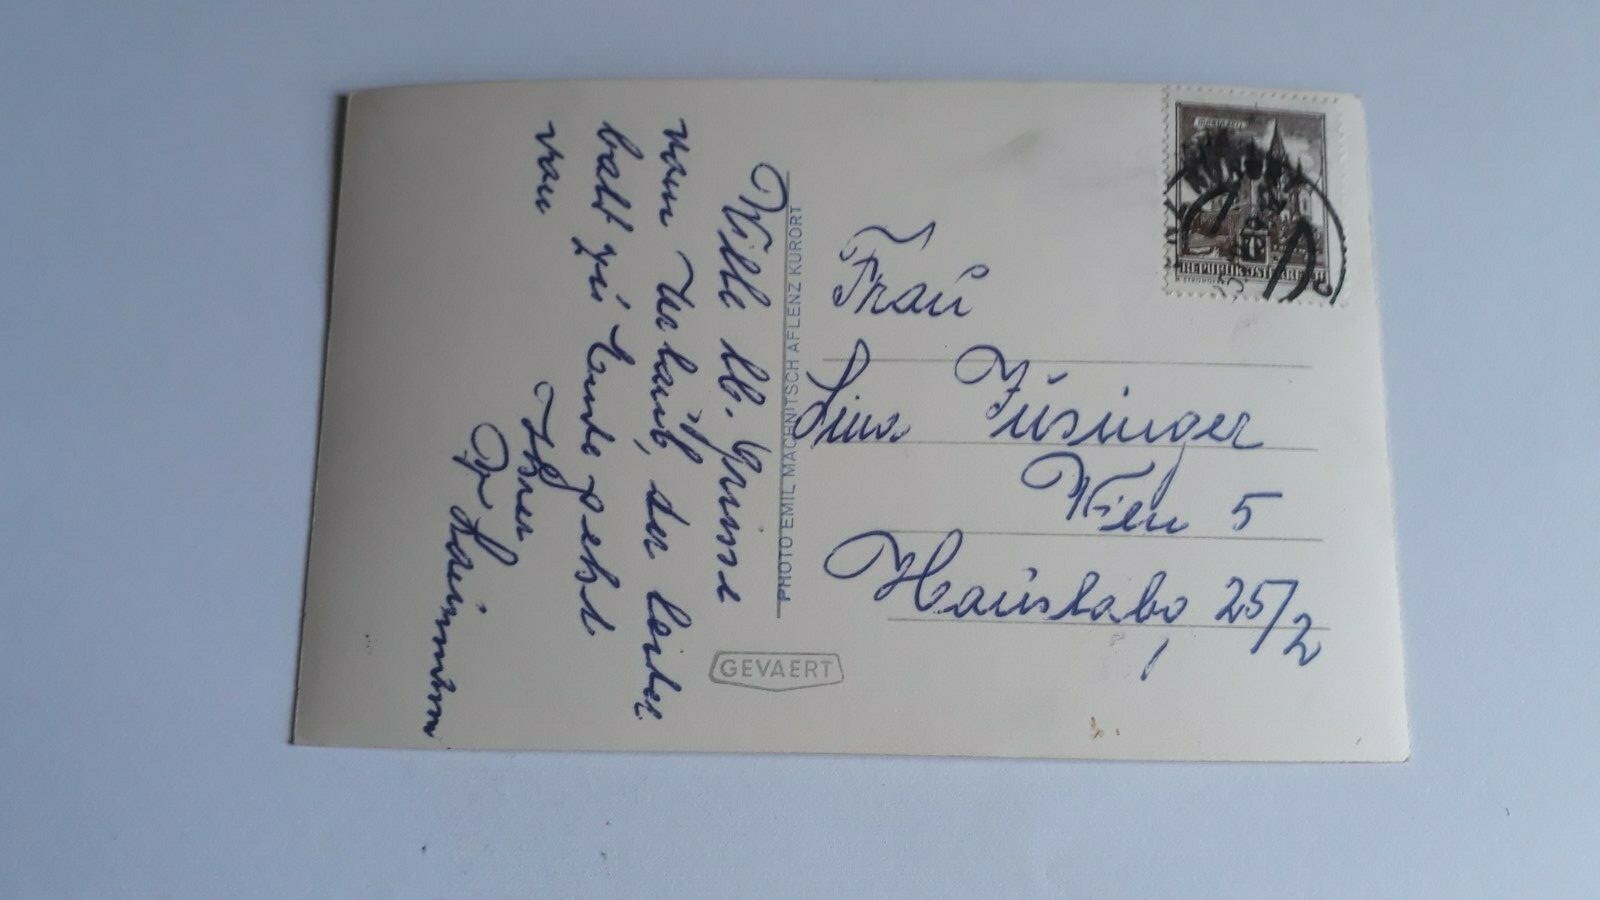 Viele lb. Grüsse
vom Urlaub, der leider
bald zu Ende geht
von
Ihrer
PHOTO EMIL MACHNITSCH AFLENZ KURORT
GEVAERT
REPUBLIK ÖSTERREICH
Frau
Lina Züsinger
Wien 5
Hauslabg 25/2